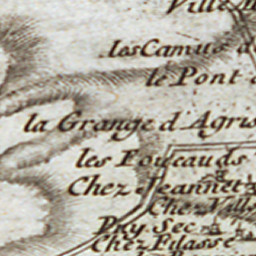 Ville
les Camus
le Pont
la Grange d'Agris
les Fouceauds
Chez Jeannet
Chez Valle
Puy Sec
Chez Filasse